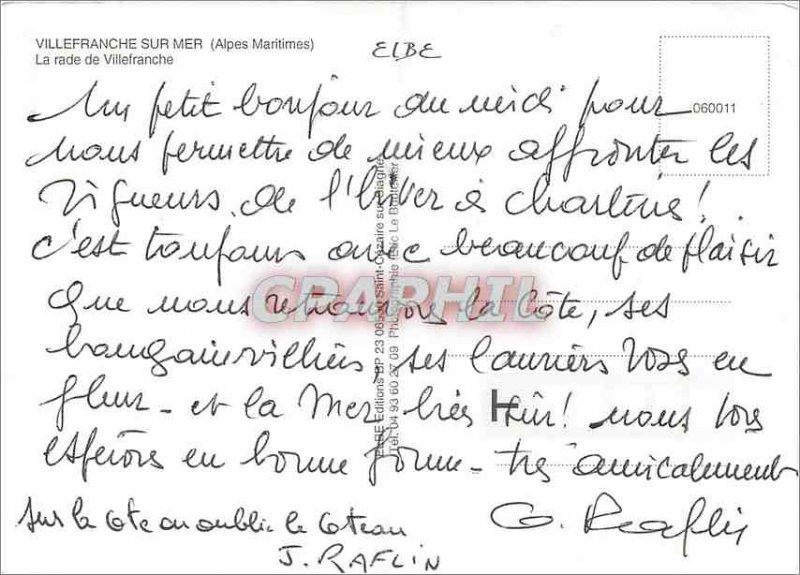 VILLEFRANCHE SUR MER (Alpes Maritimes)
La rade de Villefranche
ELBE
060011
Un petit bonjour du midi pour
nous permettre de mieux affronter les
rigueurs de l'hiver à
c'est toujours avec beaucoup de plaisir
que nous retrouvons la côte, ses
bougainvilliers, ses lauriers roses en
fleur - et la Mer bien sûr! nous vous
espérons en bonne forme - très amicalement
sur la côte on oublie le coteau
G. Raflin
J. RAFLIN
CPAPHIL
Editions BP 23 Saint-Cézaire sur Siagne
Tél. 04 93 60 27 09 Photographie